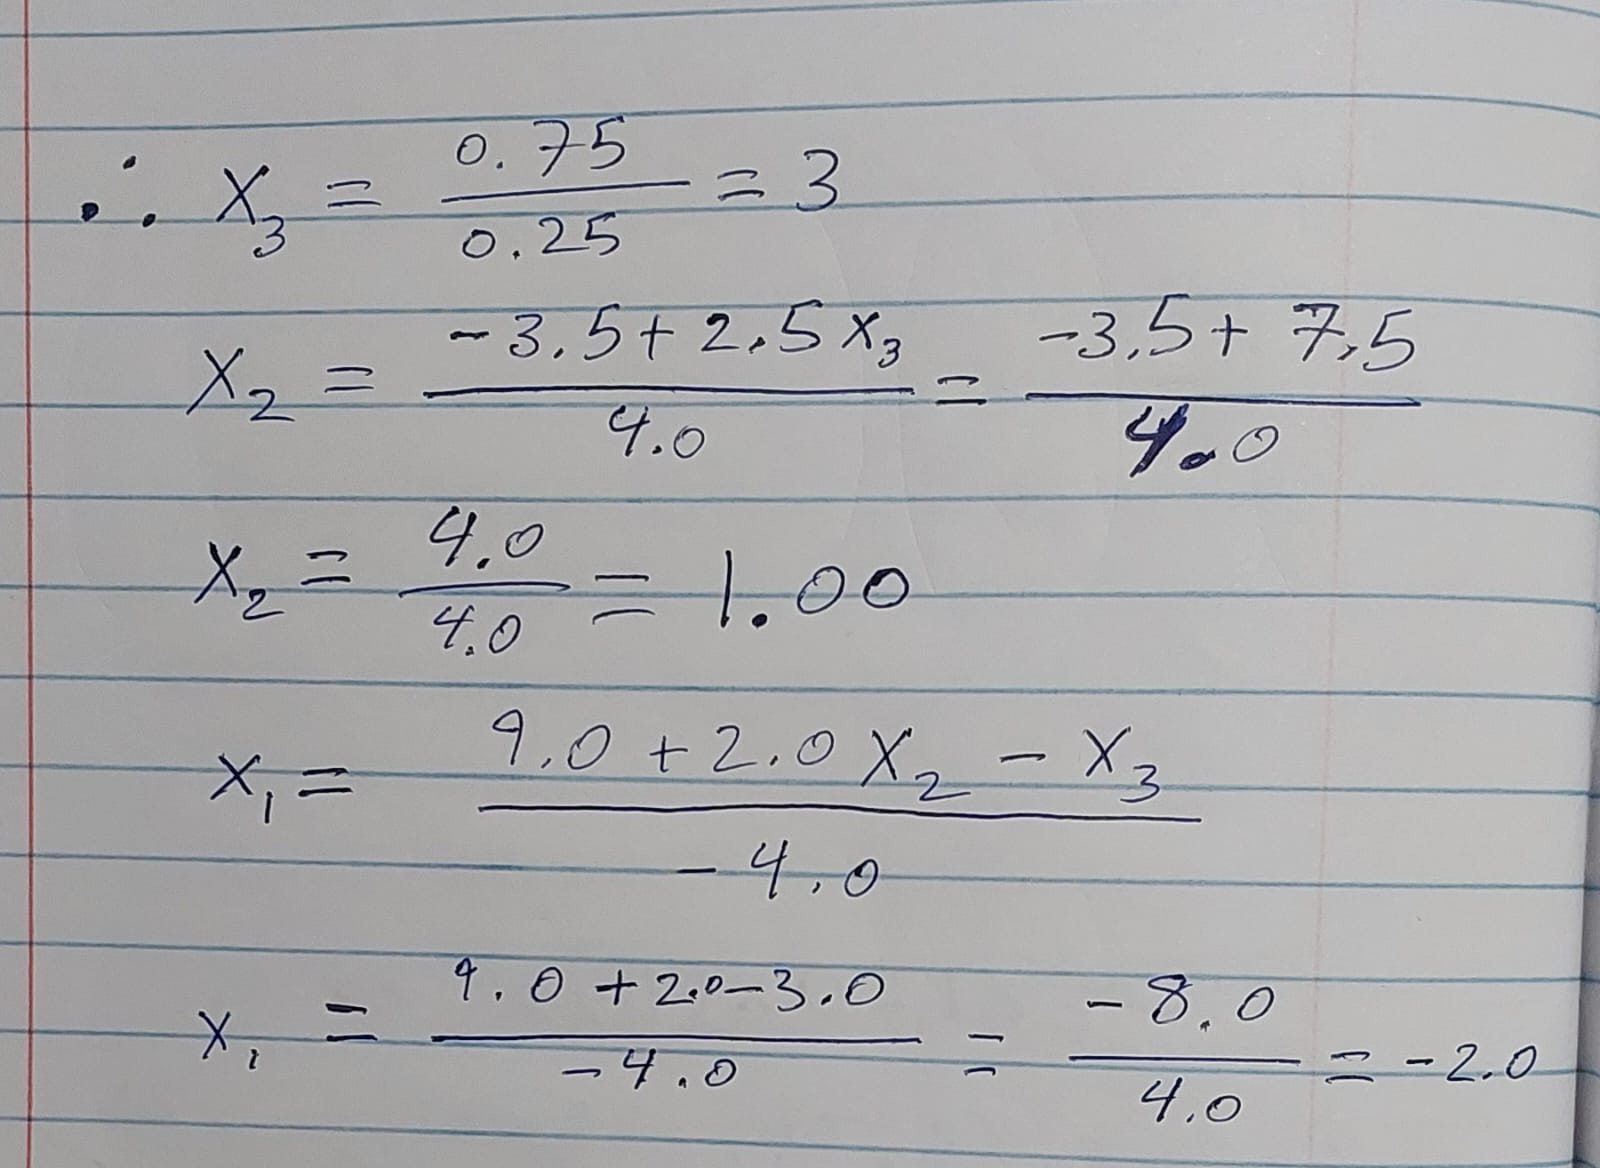 ∴ X₃ = 0.75 / 0.25 = 3
X₂ = (-3.5 + 2.5 X₃) / 4.0 = (-3.5 + 7.5) / 4.0
X₂ = 4.0 / 4.0 = 1.00
X₁ = (9.0 + 2.0 X₂ - X₃) / -4.0
X₁ = (9.0 + 2.0 - 3.0) / -4.0 = -8.0 / 4.0 = -2.0